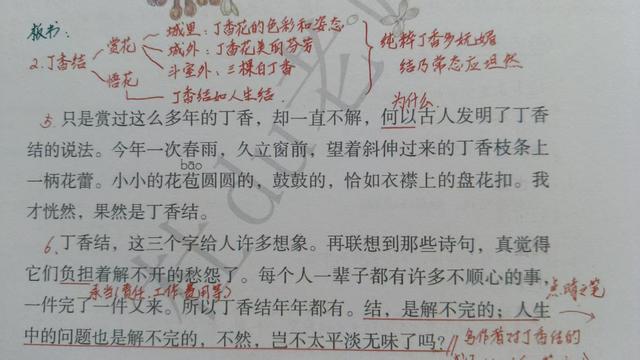 板书:
2.丁香结
赏花
城里:丁香花的色彩和姿态
城外:丁香花美丽芬芳
斗室外:三棵白丁香
悟花
丁香结如人生结
纯粹丁香多妩媚
结乃常态应坦然
为什么
5. 只是赏过这么多年的丁香,却一直不解,何以古人发明了丁香
结的说法。今年一次春雨,久立窗前,望着斜伸过来的丁香枝条上
bāo
一柄花蕾。小小的花苞圆圆的,鼓鼓的,恰如衣襟上的盘花扣。我
才恍然,果然是丁香结。
6. 丁香结,这三个字给人许多想象。再联想到那些诗句,真觉得
它们负担着解不开的愁怨了。每个人一辈子都有许多不顺心的事,
承当(责任、工作、费用等)
点睛之笔
一件完了一件又来。所以丁香结年年都有。结,是解不完的;人生
中的问题也是解不完的,不然,岂不太平淡无味了吗?
写作者对丁香结的